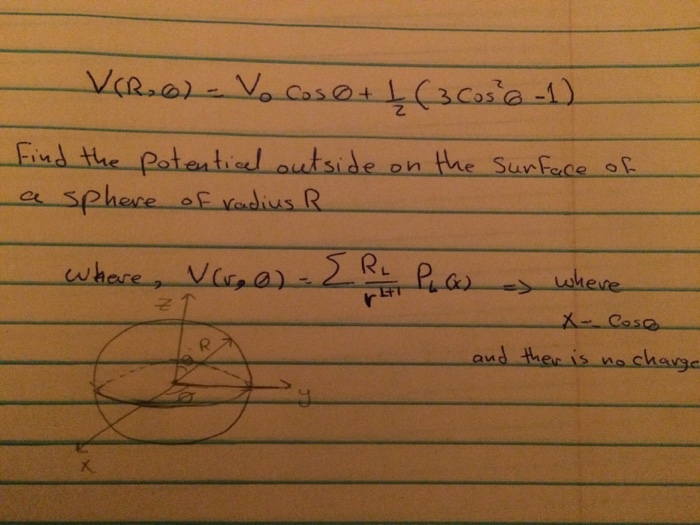 V(R,θ) = V₀ Cosθ + 1/2 (3Cos²θ -1)
Find the potential outside on the surface of
a sphere of radius R
where, V(r,θ) = Σ R_L/r^(L+1) P_L(x) => where
x = Cosθ
and ther is no charge
z
R
θ
y
θ
x